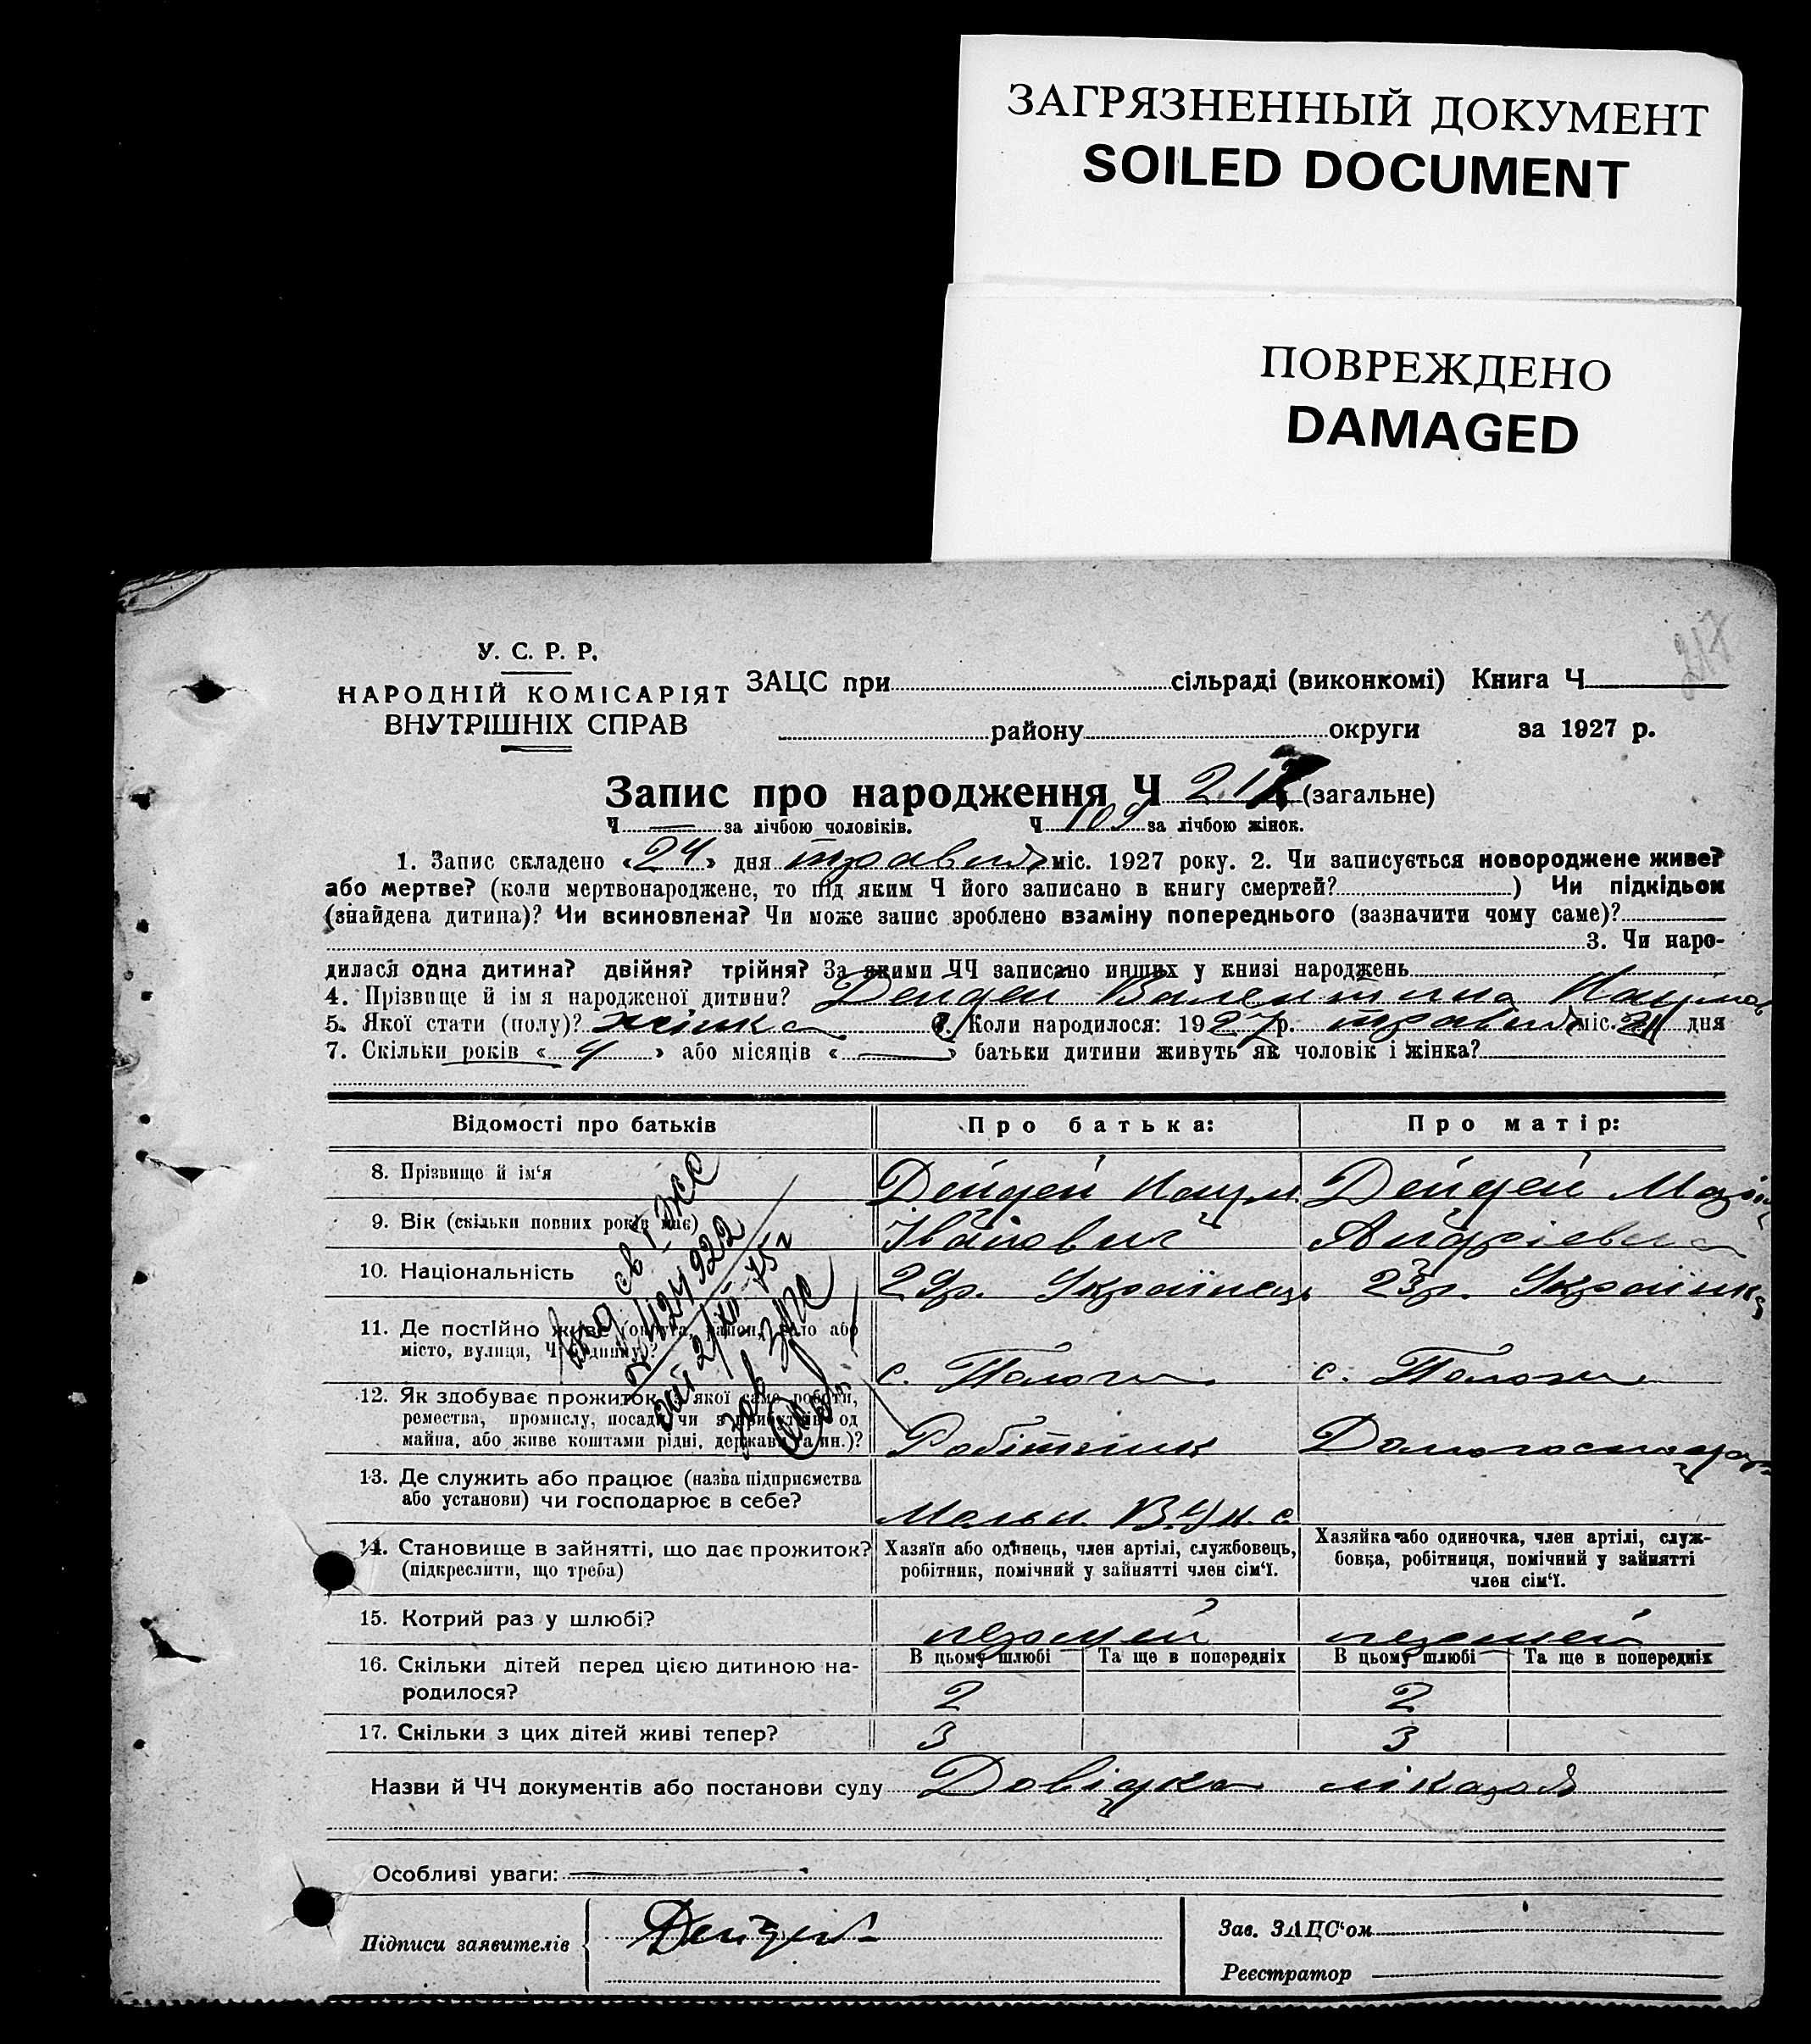 ЗАГРЯЗНЕННЫЙ ДОКУМЕНТ
SOILED DOCUMENT
ПОВРЕЖДЕНО
DAMAGED
217
У. С. Р. Р.
НАРОДНІЙ КОМІСАРІЯТ
ВНУТРІШНІХ СПРАВ
ЗАЦС при сільраді (виконкомі) Книга Ч
району округи за 1927 р.
Запис про народження Ч 217 (загальне)
Ч — за лічбою чоловіків. Ч 109 за лічбою жінок.
1. Запис складено «24» дня травня міс. 1927 року. 2. Чи записується новороджене живе?
або мертве? (коли мертвонароджене, то під яким Ч його записано в книгу смертей?) Чи підкідьок
(знайдена дитина)? Чи всиновлена? Чи може запис зроблено взаміну попереднього (зазначити чому саме)?
3. Чи наро-
дилася одна дитина? двійня? трійня? За якими ЧЧ записано инших у книзі народжень
4. Прізвище й ім я народженої дитини? Дейдей Валентина Наумов
5. Якої стати (полу)? жінка 6. Коли народилося: 1927 р. травня міс. дня
7. Скільки років «4» або місяців «—» батьки дитини живуть як чоловік і жінка?
Відомості про батьків
Про батька:
Про матір:
8. Прізвище й ім‘я
Дейдей Наум
Дейдей Марія
9. Вік (скільки повних років має)
Іванович
Андріевна
10. Національність
29р. Українець
23р. Українка
11. Де постійно живе (округа, район, село або
місто, вулиця, Ч будинку)?
с. Пологи
с. Пологи
12. Як здобуває прожиток, з якої саме роботи,
ремества, промислу, посади чи з прибутків од
майна, або живе коштами рідні, держави та ин.)?
Робітник
Домогосподар
13. Де служить або працює (назва підприємства
або установи) чи господарює в себе?
14. Становище в зайнятті, що дає прожиток?
(підкреслити, що треба)
Хазяїн або одинець, член артілі, службовець,
робітник, помічний у зайнятті член сім‘ї.
Хазяйка або одиночка, член артілі, служ-
бовка, робітниця, помічний у зайнятті
член сім‘ї.
15. Котрий раз у шлюбі?
первый
первый
16. Скільки дітей перед цією дитиною на-
родилося?
В цьому шлюбі
Та ще в попередніх
В цьому шлюбі
Та ще в попередніх
2
2
17. Скільки з цих дітей живі тепер?
3
3
Назви й ЧЧ документів або постанови суду Довідка лікаря
Особливі уваги: —
Підписи заявителів
Дейдей
Зав. ЗАЦС‘ом
Реєстратор